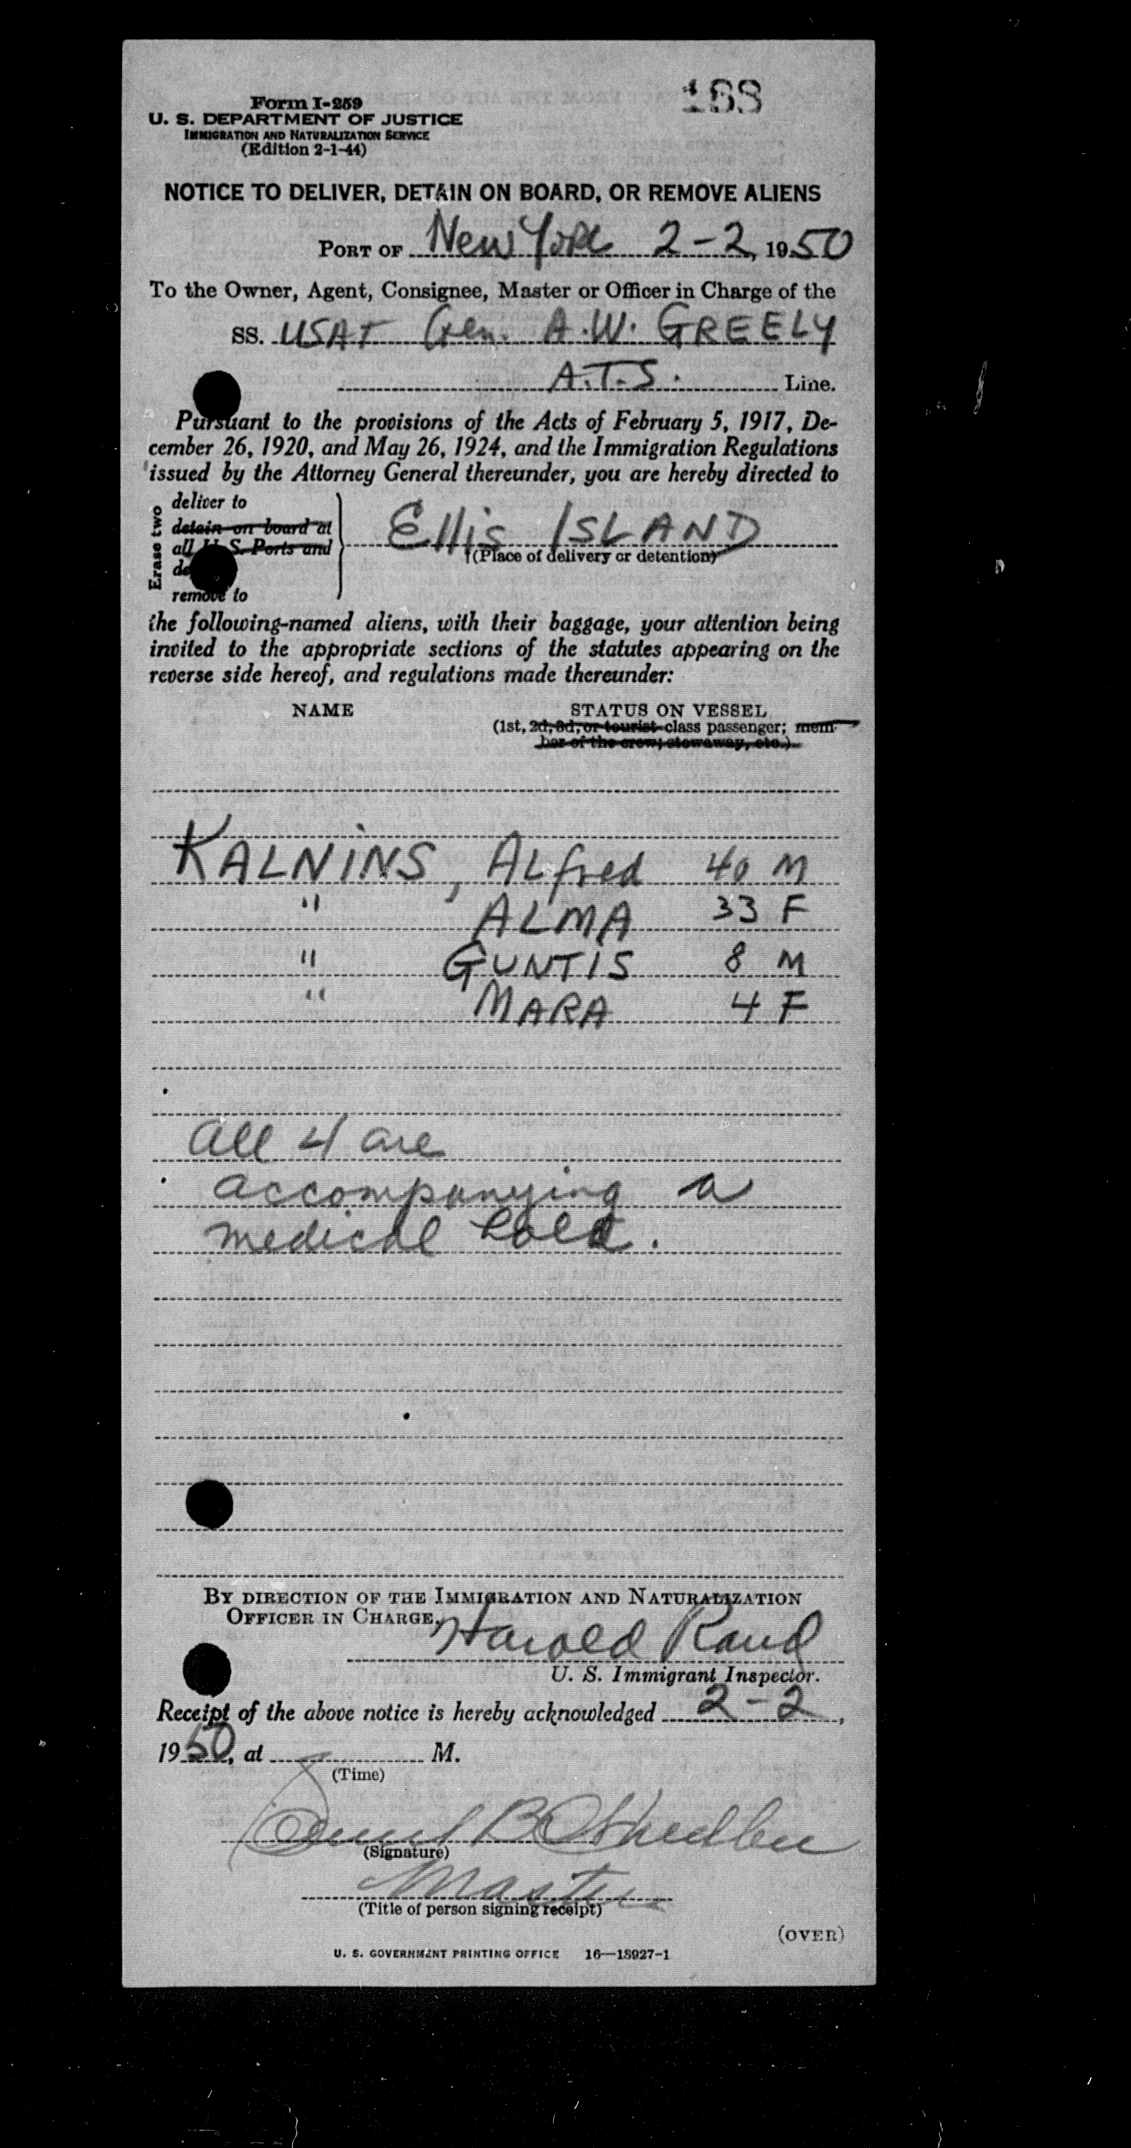 188
Form I-259
U. S. DEPARTMENT OF JUSTICE
IMMIGRATION AND NATURALIZATION SERVICE
(Edition 2-1-44)
NOTICE TO DELIVER, DETAIN ON BOARD, OR REMOVE ALIENS
PORT OF New York 2-2, 1950
To the Owner, Agent, Consignee, Master or Officer in Charge of the
SS. USAT Gen. A.W. GREELY
A.T.S. Line.
Pursuant to the provisions of the Acts of February 5, 1917, De-
cember 26, 1920, and May 26, 1924, and the Immigration Regulations
issued by the Attorney General thereunder, you are hereby directed to
Erase two
deliver to
detain on board at
all U. S. Ports and
remove to
Ellis ISLAND
(Place of delivery or detention)
the following-named aliens, with their baggage, your attention being
invited to the appropriate sections of the statutes appearing on the
reverse side hereof, and regulations made thereunder:
NAME STATUS ON VESSEL
(1st, 2d, 3d, or tourist class passenger; mem-
ber of the crew; stowaway, etc.)
KALNINS, ALfred 40 M
" ALMA 33 F
" GUNTIS 8 M
" MARA 4 F
all 4 are
accompanying a
medical hold.
BY DIRECTION OF THE IMMIGRATION AND NATURALIZATION
OFFICER IN CHARGE,
Harold Rand
U. S. Immigrant Inspector.
Receipt of the above notice is hereby acknowledged 2-2,
1950, at M.
(Time)
(Signature)
Master
(Title of person signing receipt)
(OVER)
U. S. GOVERNMENT PRINTING OFFICE 16—18927-1